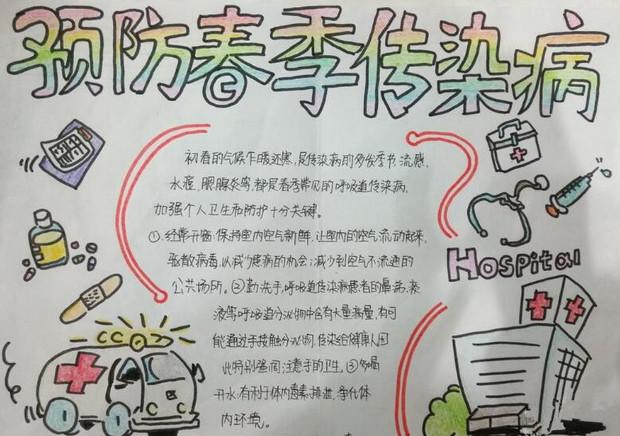 预防春季传染病
初春的气候乍暖还寒,是传染病的多发季节,流感、
水痘、腮腺炎等,都是春季常见的呼吸道传染病,
加强个人卫生和防护十分关键。
①、经常开窗,保持室内空气新鲜,让室内的空气流动起来,
驱散病毒,以减少患病的机会;减少到空气不流通的
公共场所。②勤洗手,呼吸道传染病患者的鼻涕、痰
液等呼吸道分泌物中含有大量病毒,有可
能通过手接触分泌物,传染给健康人,因
此特别强调注意手的卫生。③多喝
开水,有利于体内毒素排泄,净化体
内环境。
Hospital